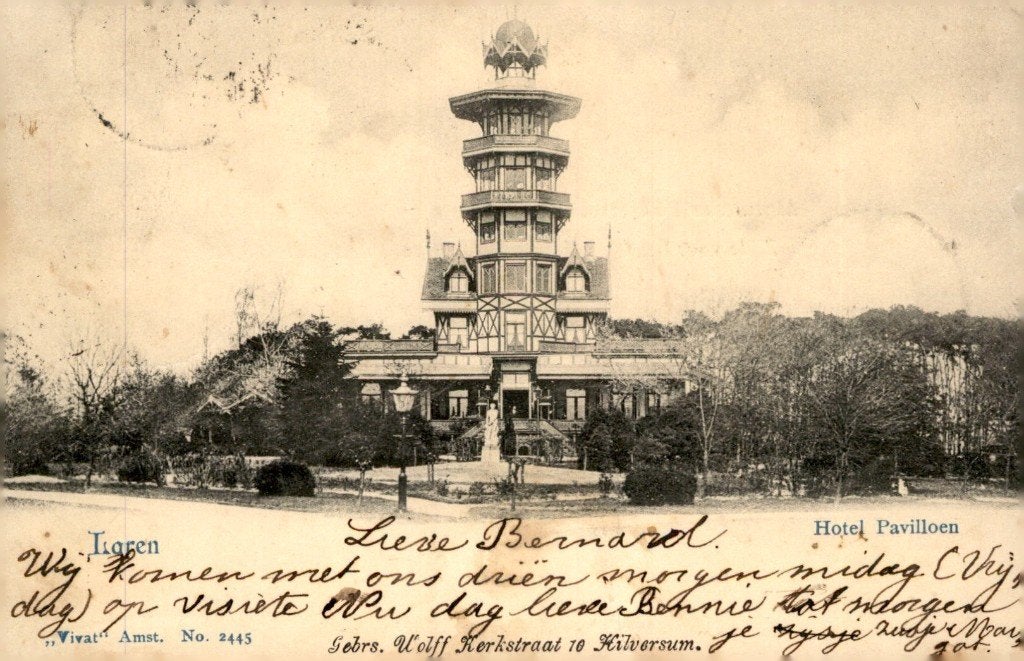 Laren
Lieve Bernard.
Hotel Pavilloen
Wij komen met ons driën morgen midag (Vrij
dag) op visiete Nu dag lieve Bennie tot morgen
„Vivat" Amst. No. 2445
Gebrs. Wolff Kerkstraat 10 Hilversum.
je zusje Mar,
got.